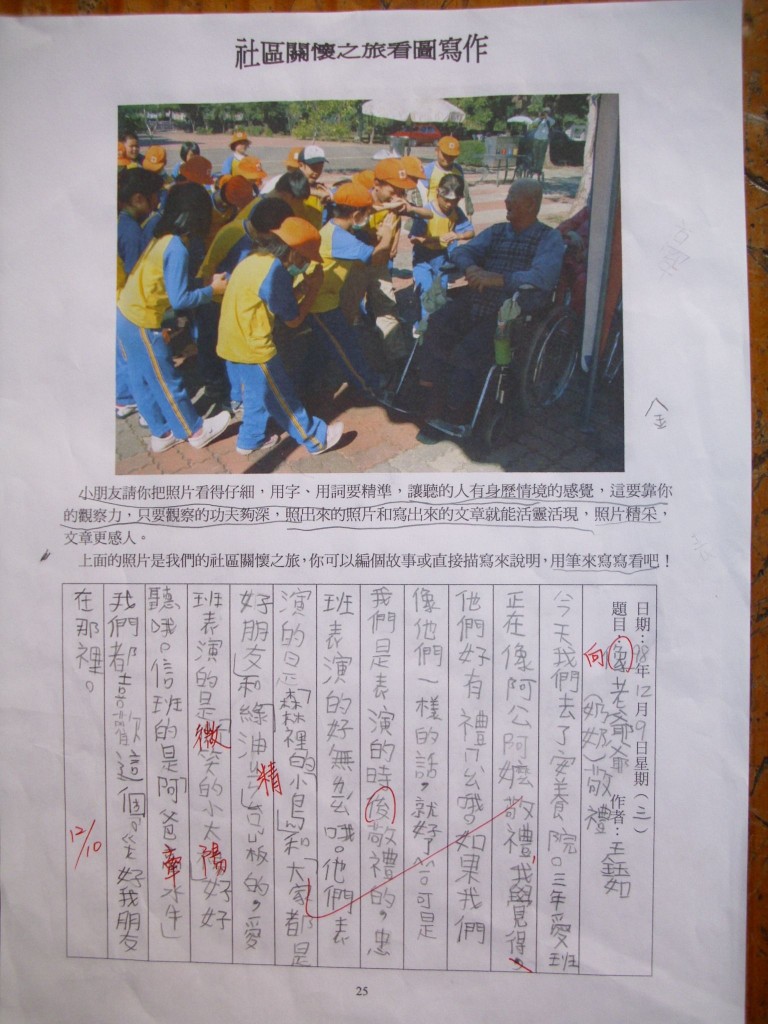 社區關懷之旅看圖寫作
小朋友請你把照片看得仔細，用字、用詞要精準，讓聽的人有身歷情境的感覺，這要靠你
的觀察力，只要觀察的功夫夠深，照出來的照片和寫出來的文章就能活靈活現，照片精采，
文章更感人。
上面的照片是我們的社區關懷之旅，你可以編個故事或直接描寫來說明，用筆來寫寫看吧！
日期：98年12月9日星期（三）
題目：像老爺爺（奶奶）敬禮 作者：王鈺如
向
今天我們去了安養院。三年愛班
正在像阿公阿嬤敬禮，我覺得。
他們好有禮ㄇㄠ哦。如果我們
像他們一樣的話，就好了。可是
我們是表演的時後敬禮的，忠
班表演的好無ㄌㄧㄠ哦。他們表
演的是「森林裡的小鳥」和「大家都是
好朋友」和綠油精ㄊㄞˊ板的，愛
班表演的是「微笑的小太陽」好好
聽哦。信班的是「阿爸牽水牛」
我們都喜歡這個。坐好我朋友
在那裡。
12/10
金
25